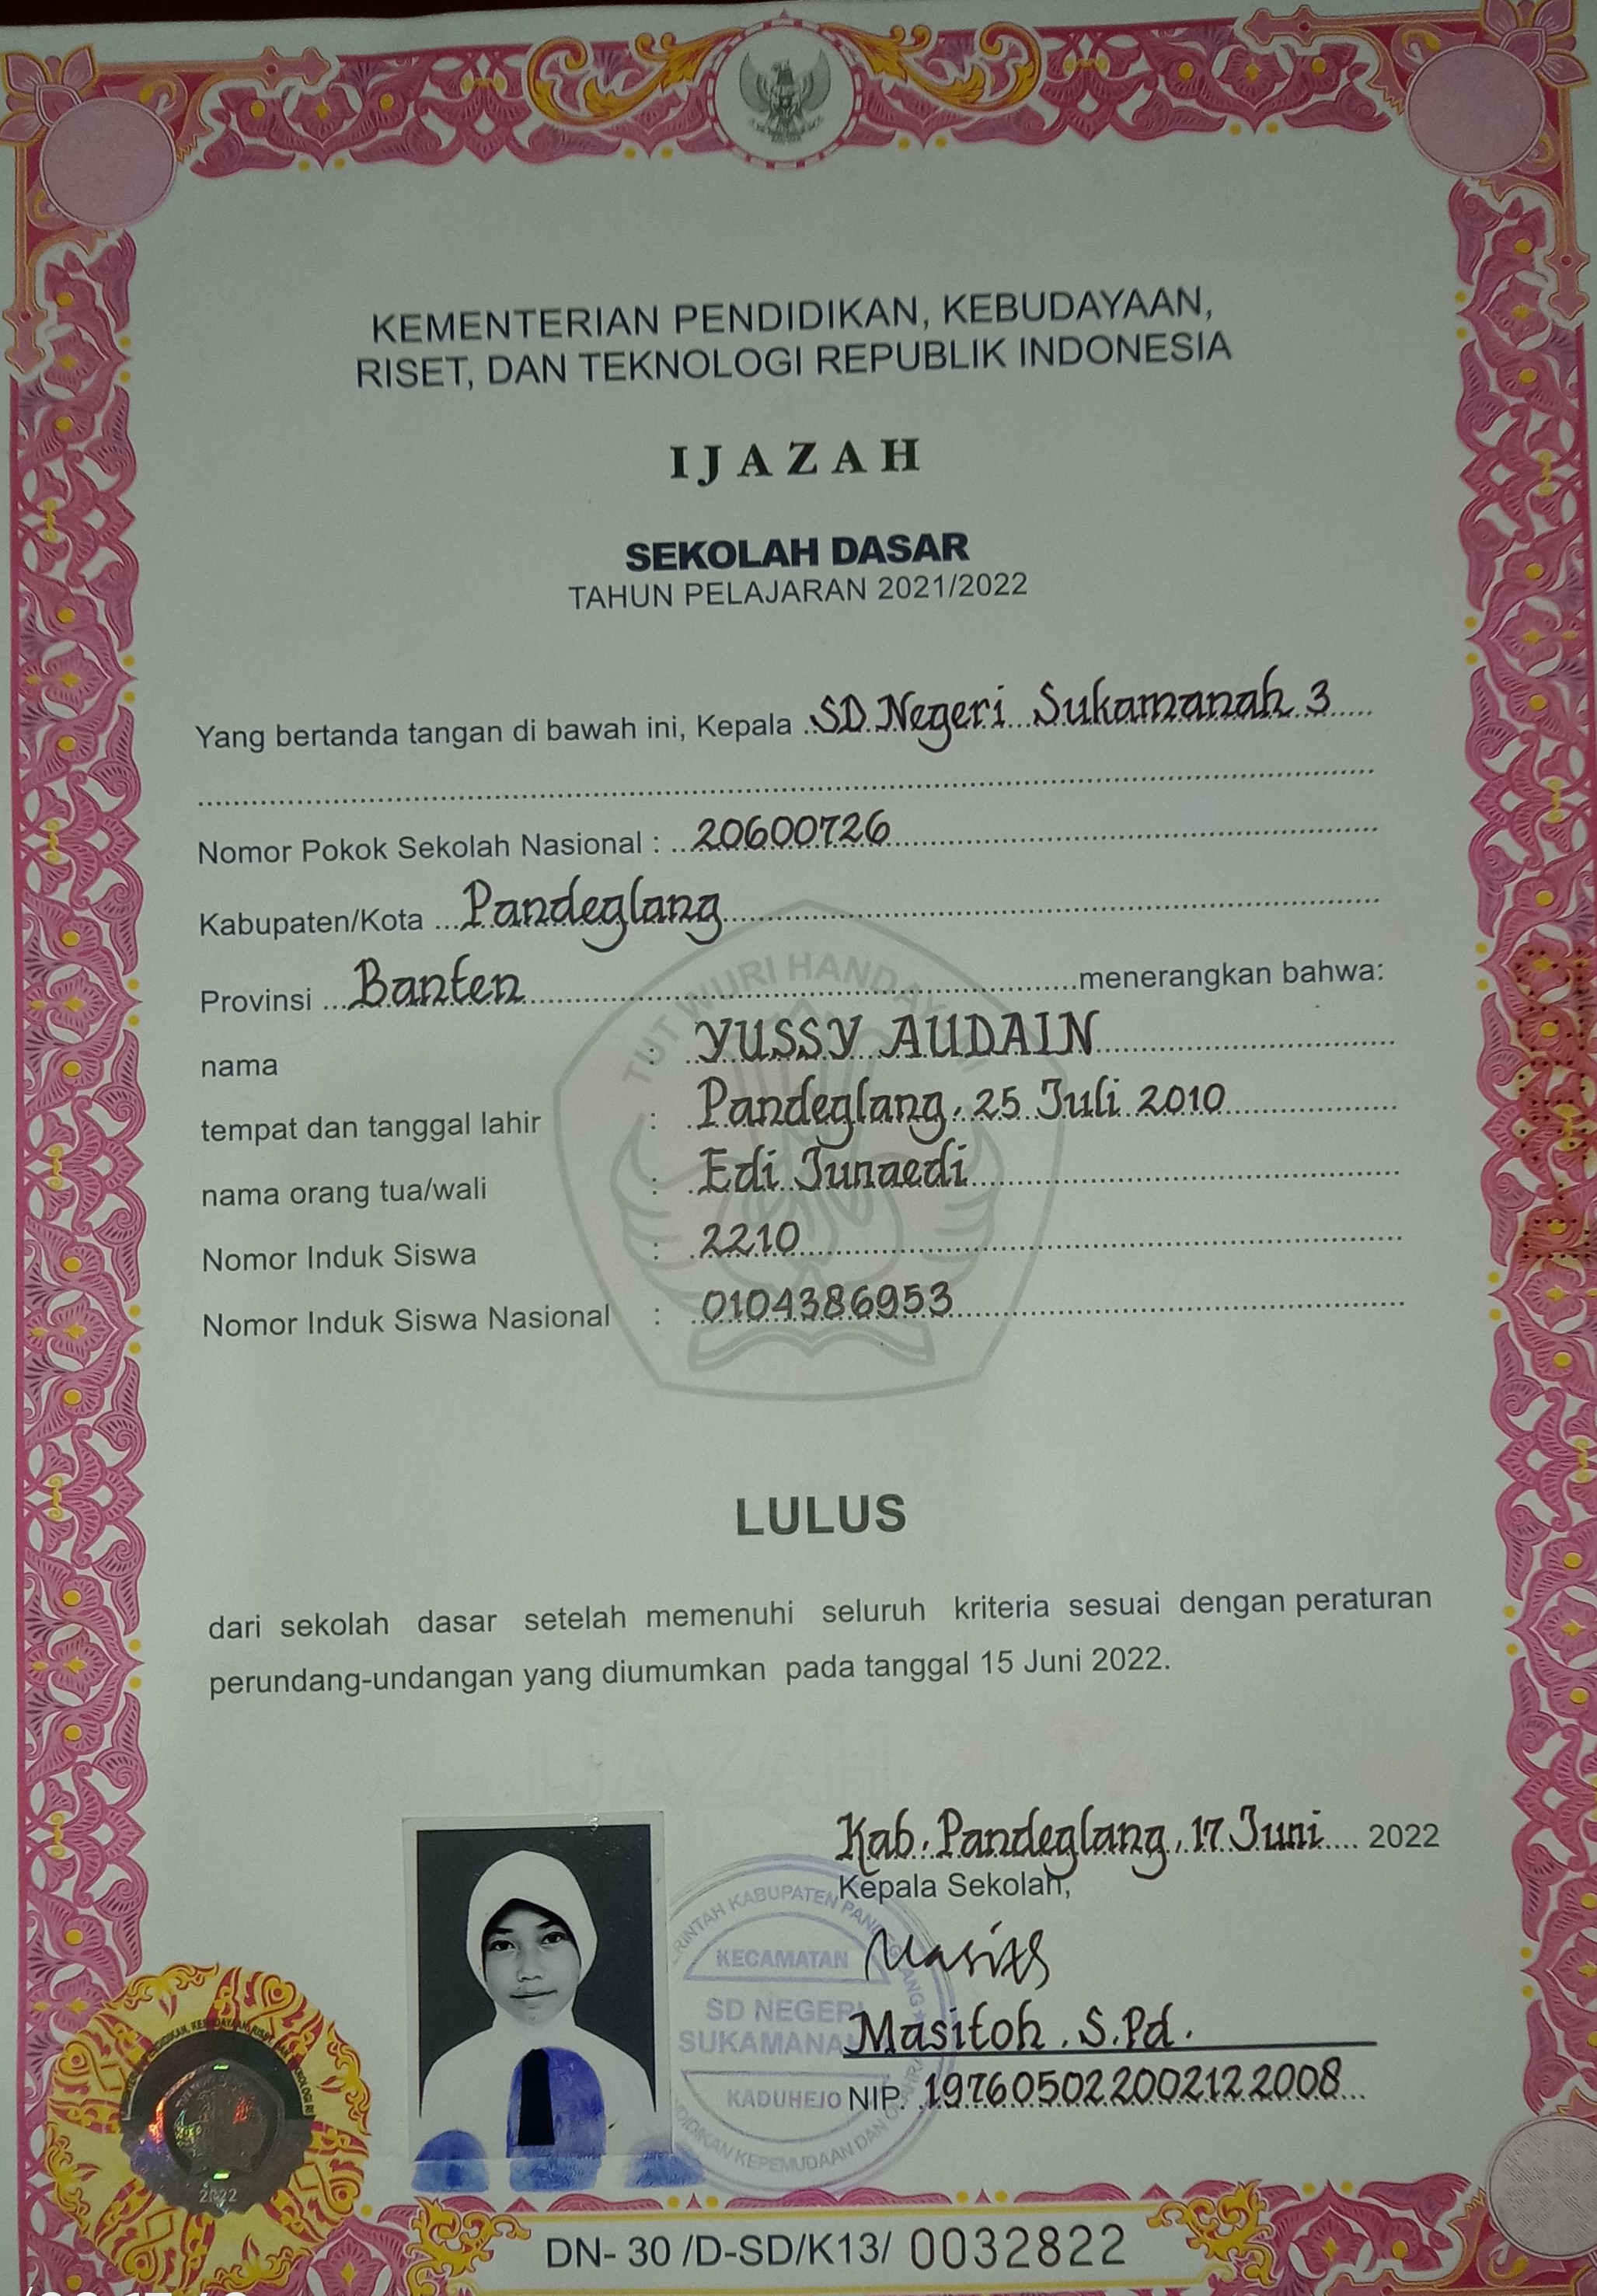 KEMENTERIAN PENDIDIKAN, KEBUDAYAAN,
RISET, DAN TEKNOLOGI REPUBLIK INDONESIA
IJAZAH
SEKOLAH DASAR
TAHUN PELAJARAN 2021/2022
Yang bertanda tangan di bawah ini, Kepala SD Negeri Sukamanah 3
Nomor Pokok Sekolah Nasional : 20600726
Kabupaten/Kota Pandeglang
Provinsi Banten menerangkan bahwa:
TUT WURI HANDAYANI
nama : YUSSY AUDAIN
tempat dan tanggal lahir : Pandeglang, 25 Juli 2010
nama orang tua/wali : Edi Junaedi
Nomor Induk Siswa : 2210
Nomor Induk Siswa Nasional : 0104386953
LULUS
dari sekolah dasar setelah memenuhi seluruh kriteria sesuai dengan peraturan
perundang-undangan yang diumumkan pada tanggal 15 Juni 2022.
Kab. Pandeglang, 17 Juni 2022
Kepala Sekolah,
KABUPATEN
KECAMATAN
SD NEGERI
SUKAMANAH
KADUHEJO
KEPEMUDAAN DAN
Masitoh, S.Pd.
NIP. 197605022002122008
2022
DN- 30 /D-SD/K13/ 0032822